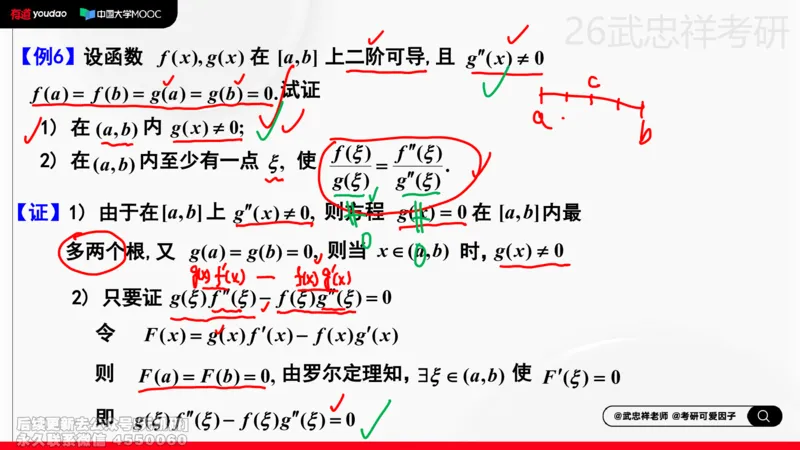 有道 youdao 中国大学MOOC
26武忠祥考研
【例6】设函数 f(x), g(x) 在 [a,b] 上二阶可导, 且 g″(x) ≠ 0
f(a) = f(b) = g(a) = g(b) = 0. 试证
c
a
b
1) 在 (a,b) 内 g(x) ≠ 0;
2) 在(a,b)内至少有一点 ξ, 使 f(ξ)/g(ξ) = f″(ξ)/g″(ξ).
【证】1) 由于在[a,b]上 g″(x) ≠ 0, 则方程 g(x) = 0 在 [a,b]内最
0 0
多两个根, 又 g(a) = g(b) = 0, 则当 x∈(a,b) 时, g(x) ≠ 0
g(x) f′(x) — f(x) g′(x)
2) 只要证 g(ξ)f″(ξ) − f(ξ)g″(ξ) = 0
令 F(x) = g(x)f′(x) − f(x)g′(x)
则 F(a) = F(b) = 0, 由罗尔定理知, ∃ξ∈(a,b) 使 F′(ξ) = 0
即 g(ξ)f″(ξ) − f(ξ)g″(ξ) = 0
@武忠祥老师 @考研可爱因子
后续更新去公众号
永久联系微信 4550060